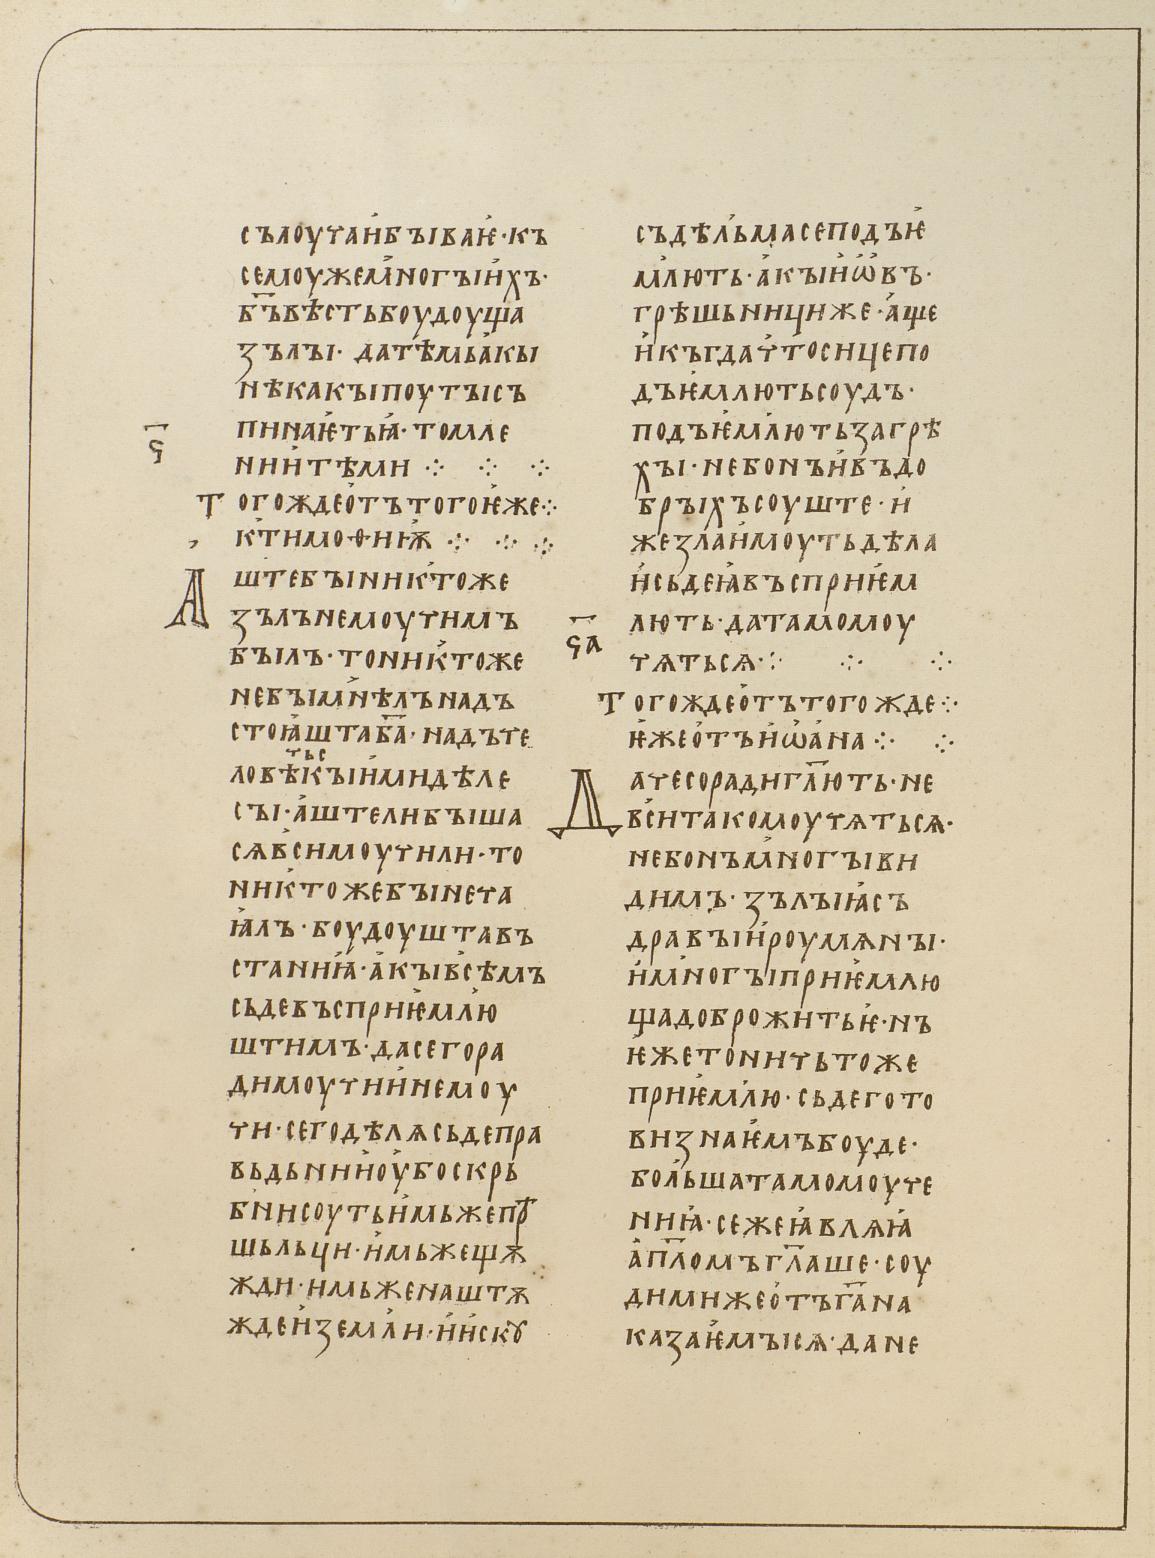 съ лоучаи бываѥ· къ
семоу же мⷩногыихъ·
б҃ъ вѣсть боудоуща
зълы· да тѣмь акы
нѣкакы поуты съ
пинаѥть ꙗ· томле
нии тѣми ⁘ ⁘ ⁘
ѕ҃
Тогожде отъ того ѥже ⁘
к тимоѳиѭ ⁘ ⁘ ⁘
Аште бы никтоже
зълъ не моучимъ
былъ· то никтоже
не бы мнѣлъ надъ
стоꙗшта б҃а· надъ че
ловѣчьскыими дѣле
сы· аште ли быша
сѧ вси моучили· то
никтоже бы не ча
ꙗлъ· боудоушта въ
станиꙗ· акы всѣмъ
сьде въсприѥмлю
штимъ· да сего ра
ди моучи и не моу
чи· сего дѣлѧ сьде пра
вьдьнии оубо скрь
бни соуть имьже прѣ
шьльци· имьже щѫ
жди· имьже на штѫ
ждеи земли· и искоу
съ дѣльма се подъѥ
млють· акы и ѡвъ·
грѣшьници же· аще
и къгда чьто сице по
дъѥмлють соудъ·
подъѥмлють за грѣ
хы· не бо нъи въ до
брыхъ соуште· и
же зла имоуть дѣла
и сьде ꙗ въсприѥм
лють· да тамо моу
чѧться ⁘ ⁘ ⁘
ѕ҃а
Тогожде отъ тогожде ⁘
ѥже отъ иѡана ⁘ ⁘
Да чесо ради гл҃ють· не
вси тако моучѧться·
не бо нъ многы ви
димъ· зълыꙗ съ
дравы и роумѧны·
и многы приѥмлю
ща доброжитьѥ· нъ
ѥже то ничьтоже
приѥмлю· сьде го то
ви знаѥмъ боуде·
больша тамо моуче
ниꙗ· се же ꙗвлѧꙗ
ап҃ломъ гл҃аше· соу
дими же отъ г҃а на
казаѥмы сѧ· да не